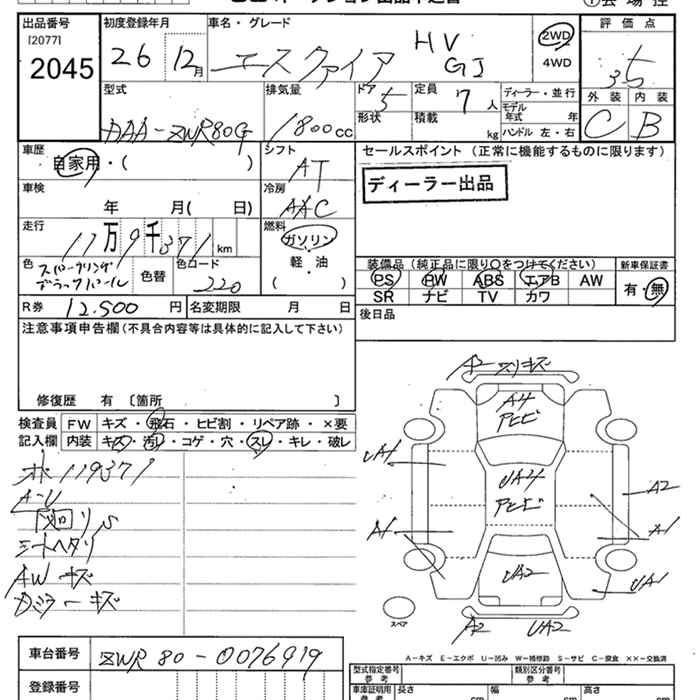 出品番号
[2077]
2045
初度登録年月
26 12月
車名・グレード
エスクァイア HV GJ
2WD
4WD
評価点
3.5
外装 内装
C B
型式
DAA-ZWR80G
排気量
1800cc
ドア
5
形状
定員
7人
積載
kg
ディーラー・並行
モデル年式 年
ハンドル 左・右
車歴
自家用・( )
シフト
AT
セールスポイント (正常に機能するものに限ります)
ディーラー出品
車検
年 月( 日)
冷房
AAC
走行
11万9千371km
燃料
ガソリン
軽・油
( )
色
スパークリングブラックパール
色替
色コード
220
装備品(純正品に限り○をつけてください)
PS PW ABS エアB AW
SR ナビ TV カワ
新車保証書
有・無
R券 12,500円
名変期限 月 日
後日品
注意事項申告欄(不具合内容等は具体的に記入して下さい)
修復歴 有 〔箇所 〕
検査員記入欄
FW キズ・飛石・ヒビ割・リペア跡・×要
内装 キズ・汚レ・コゲ・穴・スレ・キレ・破レ
119371
シートヘタリ
AWキズ
キズ
A2 スリキズ
A4
アヒビ
UA1
UA4
アヒビ
A2
A1
A1
UA2
UA1
A2 UA2
スペア
A-キズ E-エクボ U-凹み W-補修跡 S-サビ C-腐食 XX-交換済
車台番号
ZWR80-0076919
登録番号
型式指定番号
参考
類別区分番号
参考
車庫証明用
参考
長さ cm
幅 cm
高さ cm